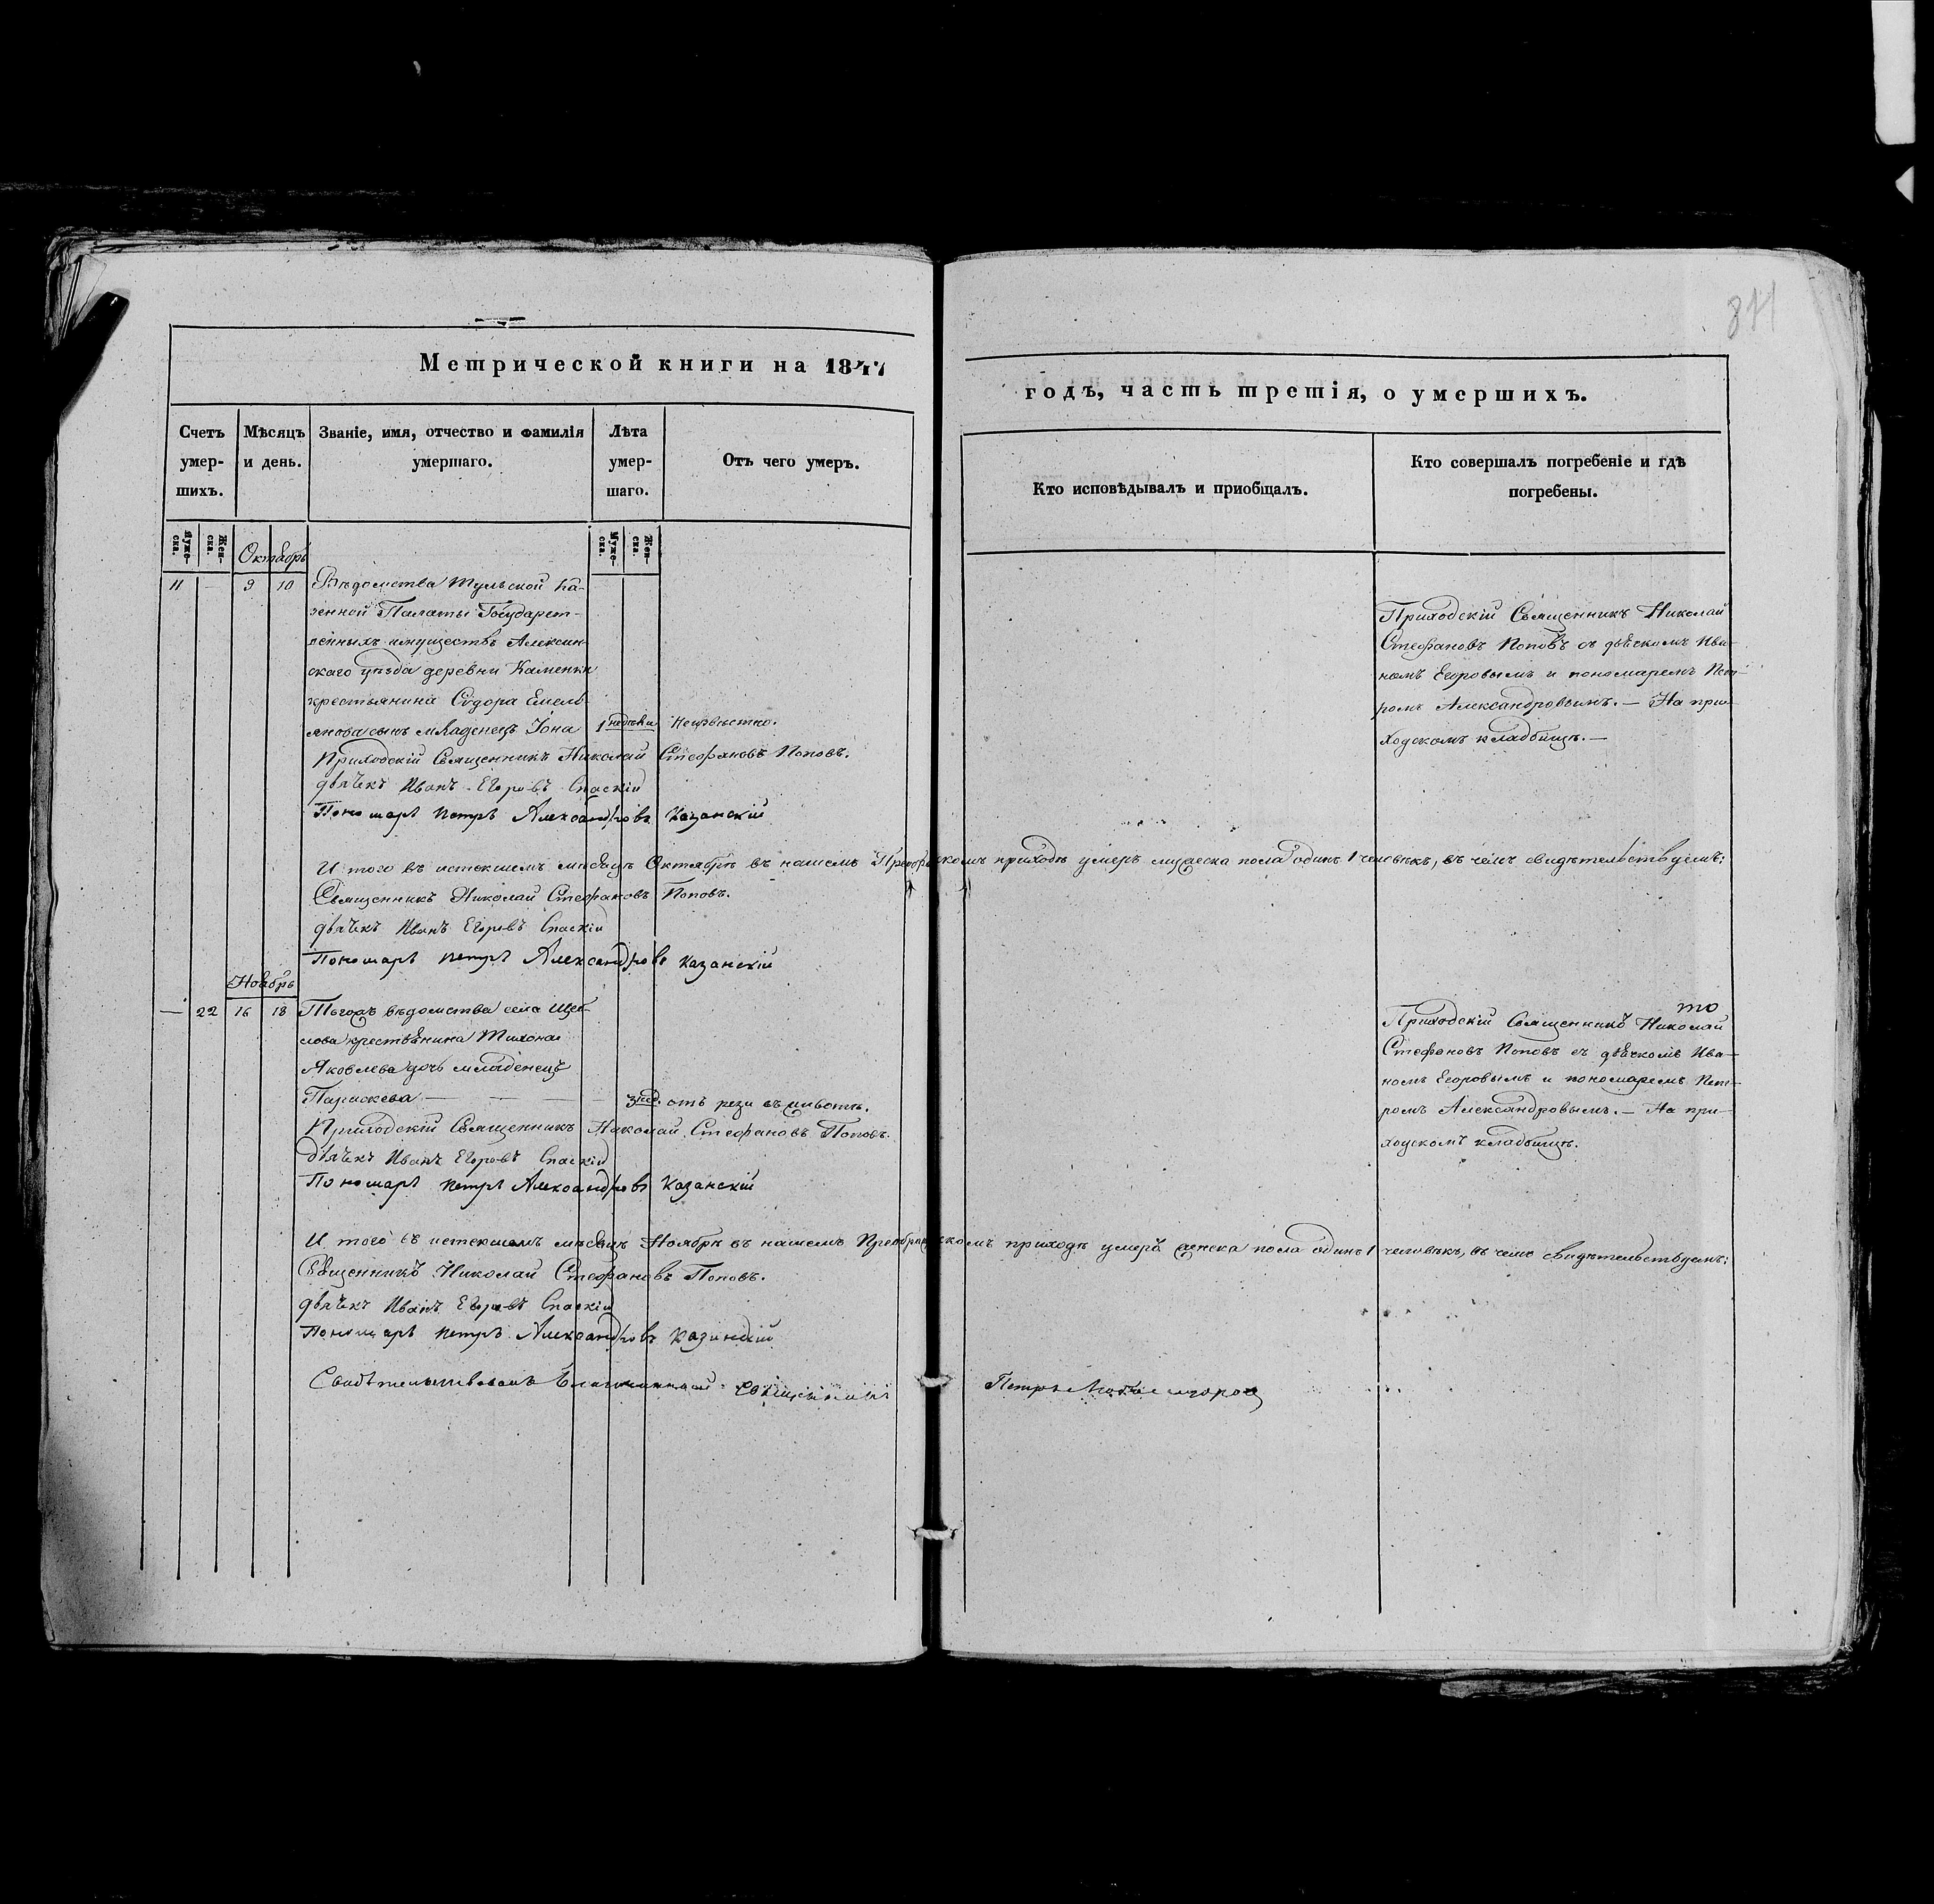 811
Метрической книги на 1847
годъ, часть третія, о умершихъ.
Счетъ умер- шихъ.
Мѣсяцъ и день.
Званіе, имя, отчество и фамилія умершаго.
Лѣта умер- шаго.
Отъ чего умеръ.
Кто исповѣдывалъ и приобщалъ.
Кто совершалъ погребеніе и гдѣ погребены.
Муже- ска.
Жен- ска.
Муже- ска.
Жен- ска.
Октябрь
11 — 9 10 Вѣдомства Тульской Ка-
зенной Палаты Государст-
венныхъ имуществъ Алексин-
скаго уѣзда деревни Каменки
крестьянина Сидора Емель-
янова сынъ младенецъ Іона 1 недѣли Неизвѣстно.
Приходскій Священникъ Николай
Стефановъ Поповъ съ дьячкомъ Ива-
номъ Егоровымъ и пономаремъ Пет-
ромъ Александровымъ. — На при-
ходскомъ кладбищѣ. —
Приходскій Священникъ Николай Стефановъ Поповъ.
дьячекъ Иванъ Егоровъ Спаскій
Пономарь Петръ Александровъ Казанскій
И того въ истекшемъ мѣсяцѣ Октябрѣ въ нашемъ приходѣ умеръ мужеска пола одинъ 1 человѣкъ, въ чемъ свидѣтельствуемъ:
Священникъ Николай Стефановъ Поповъ.
дьячекъ Иванъ Егоровъ Спаскій
Пономарь Петръ Александровъ Казанскій
Ноябрь
— 22 16 18 Тогоже вѣдомства села
крестьянина Тихона
Яковлева дочь младенецъ
Параскева — — — — 3 нед. отъ рези въ животѣ.
то
Приходскій Священникъ Николай
Стефановъ Поповъ съ дьячкомъ Ива-
номъ Егоровымъ и пономаремъ Пет-
ромъ Александровымъ. — На при-
ходскомъ кладбищѣ.
Приходскій Священникъ Николай Стефановъ Поповъ.
дьячекъ Иванъ Егоровъ Спаскій
Пономарь Петръ Александровъ Казанскій
И того въ истекшемъ мѣсяцѣ Ноябрѣ въ нашемъ приходѣ умерѣ женска пола одинъ 1 человѣкъ, въ чемъ свидѣтельствуемъ:
Священникъ Николай Стефановъ Поповъ.
дьячекъ Иванъ Егоровъ Спаскій
Пономарь Петръ Александровъ Казанскій
Свидѣтельствовалъ Благочинный Священникъ Петръ